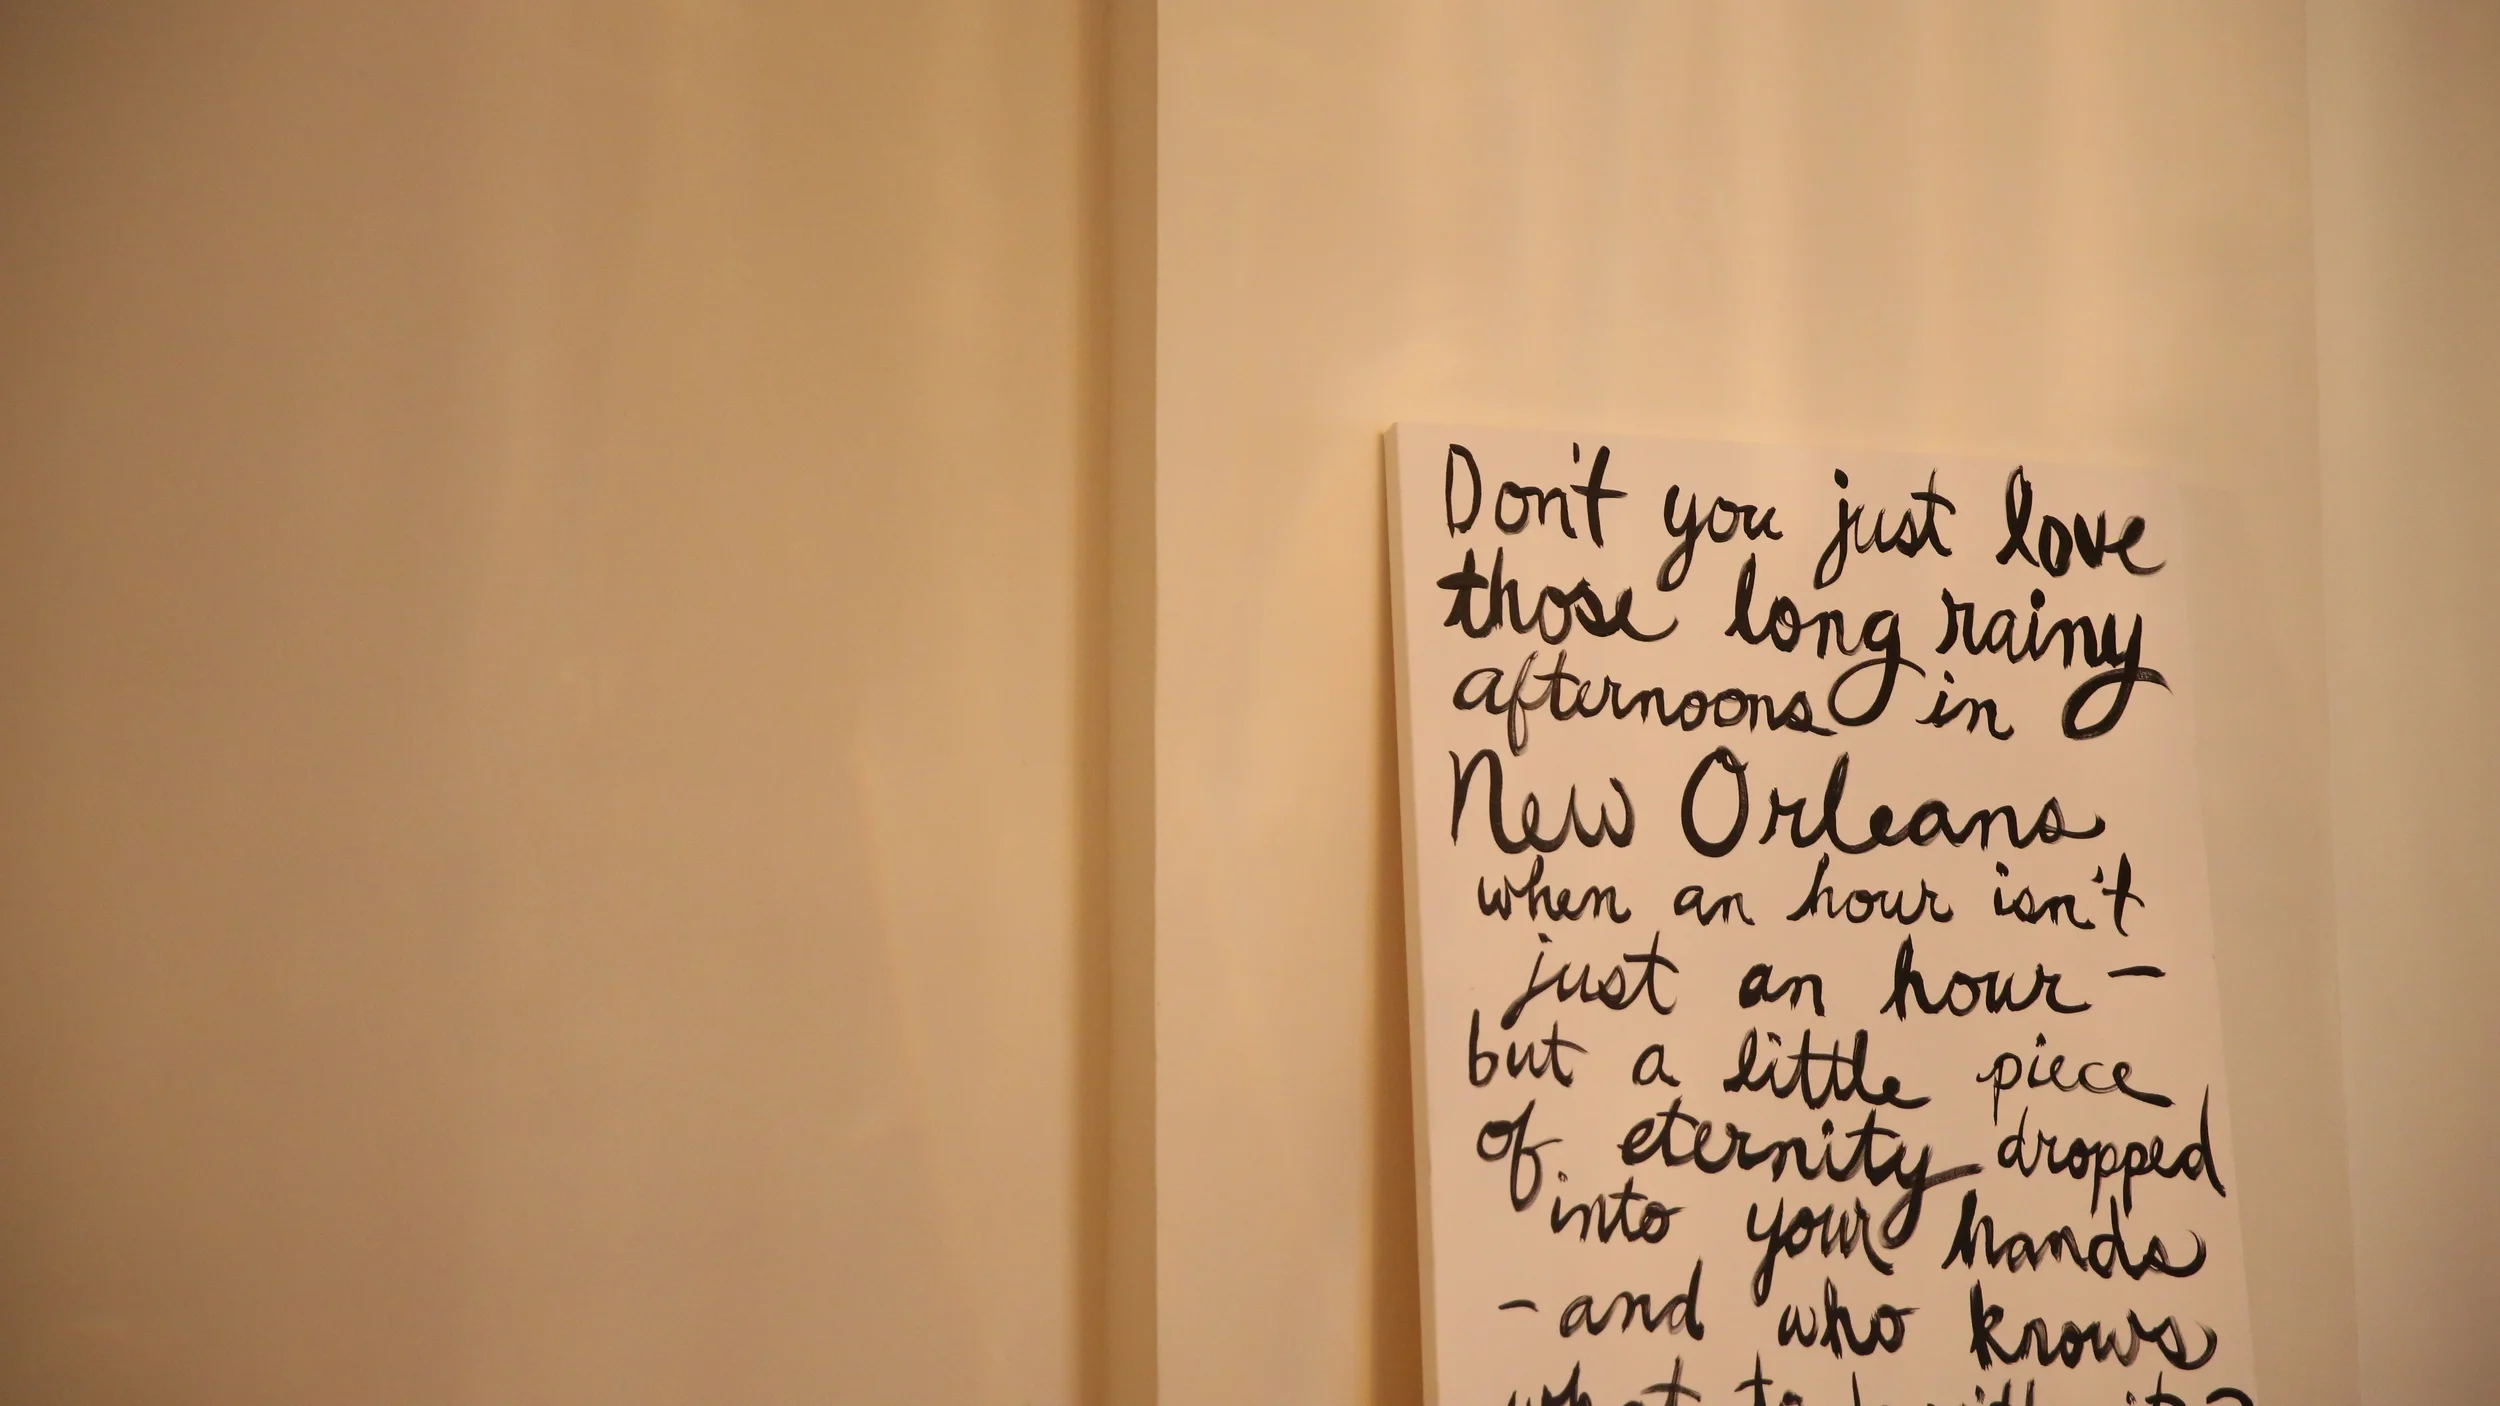 Don't you just love
those long rainy
afternoons in
New Orleans
when an hour isn't
just an hour—
but a little piece
of eternity dropped
into your hands
—and who knows
what to do with it?